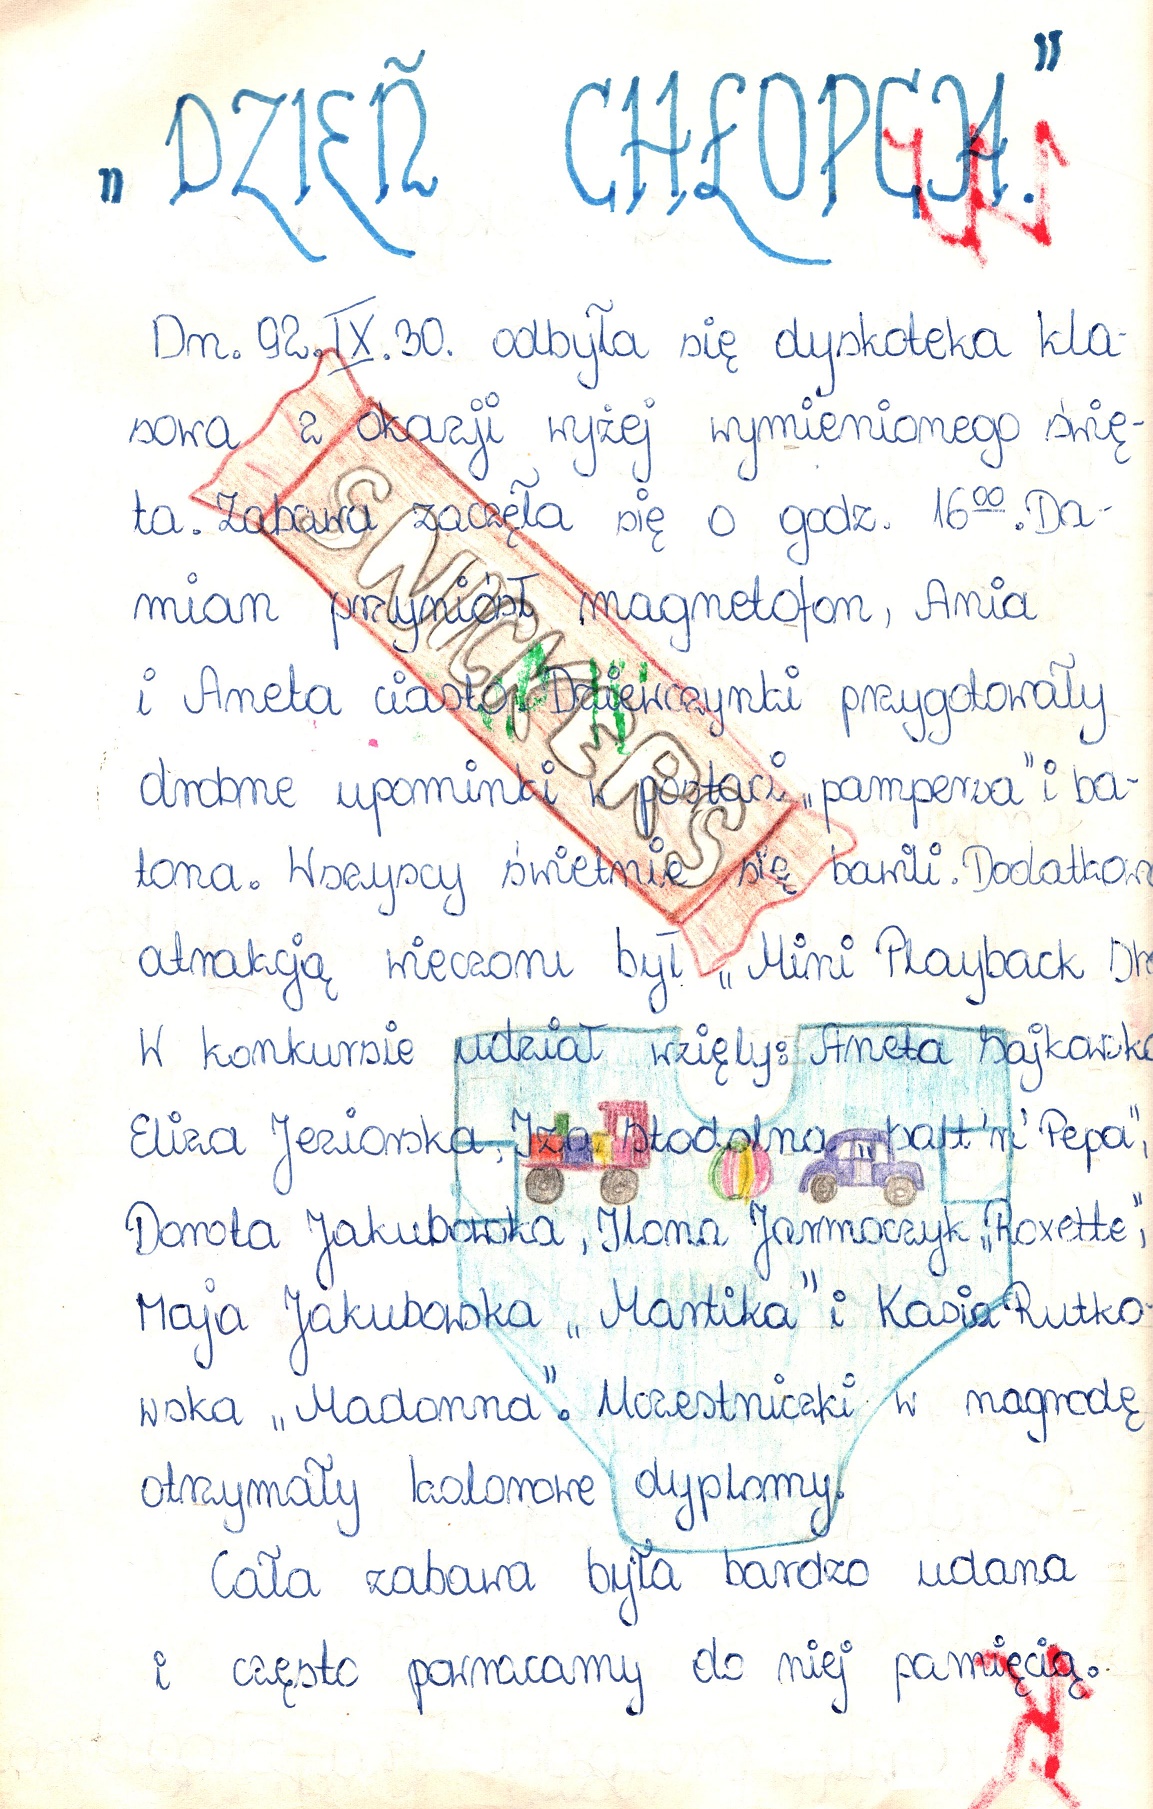 „DZIEŃ CHŁOPCA."
Dn. 92.IX.30. odbyła się dyskoteka kla-
sowa z okazji wyżej wymienionego świę-
ta. Zabawa zaczęła się o godz. 16⁰⁰. Da-
mian przyniósł magnetofon, Ania
i Aneta ciasto. Dziewczynki przygotowały
drobne upominki w postaci „pampersa" i ba-
SNICKERS
tona. Wszyscy świetnie się bawili. Dodatkow
atrakcją wieczoru był „Mini Playback Sh
W konkursie udział wzięły: Aneta Bajkowska
Eliza Jeziorska, Iza Stodolna „Salt 'n' Pepa",
Dorota Jakubowska, Ilona Jarmoczyk „Roxette",
Maja Jakubowska „Martika" i Kasia Rutko-
wska „Madonna". Uczestniczki w nagrodę
otrzymały kolorowe dyplomy.
Cała zabawa była bardzo udana
i często powracamy do niej pamięcią.